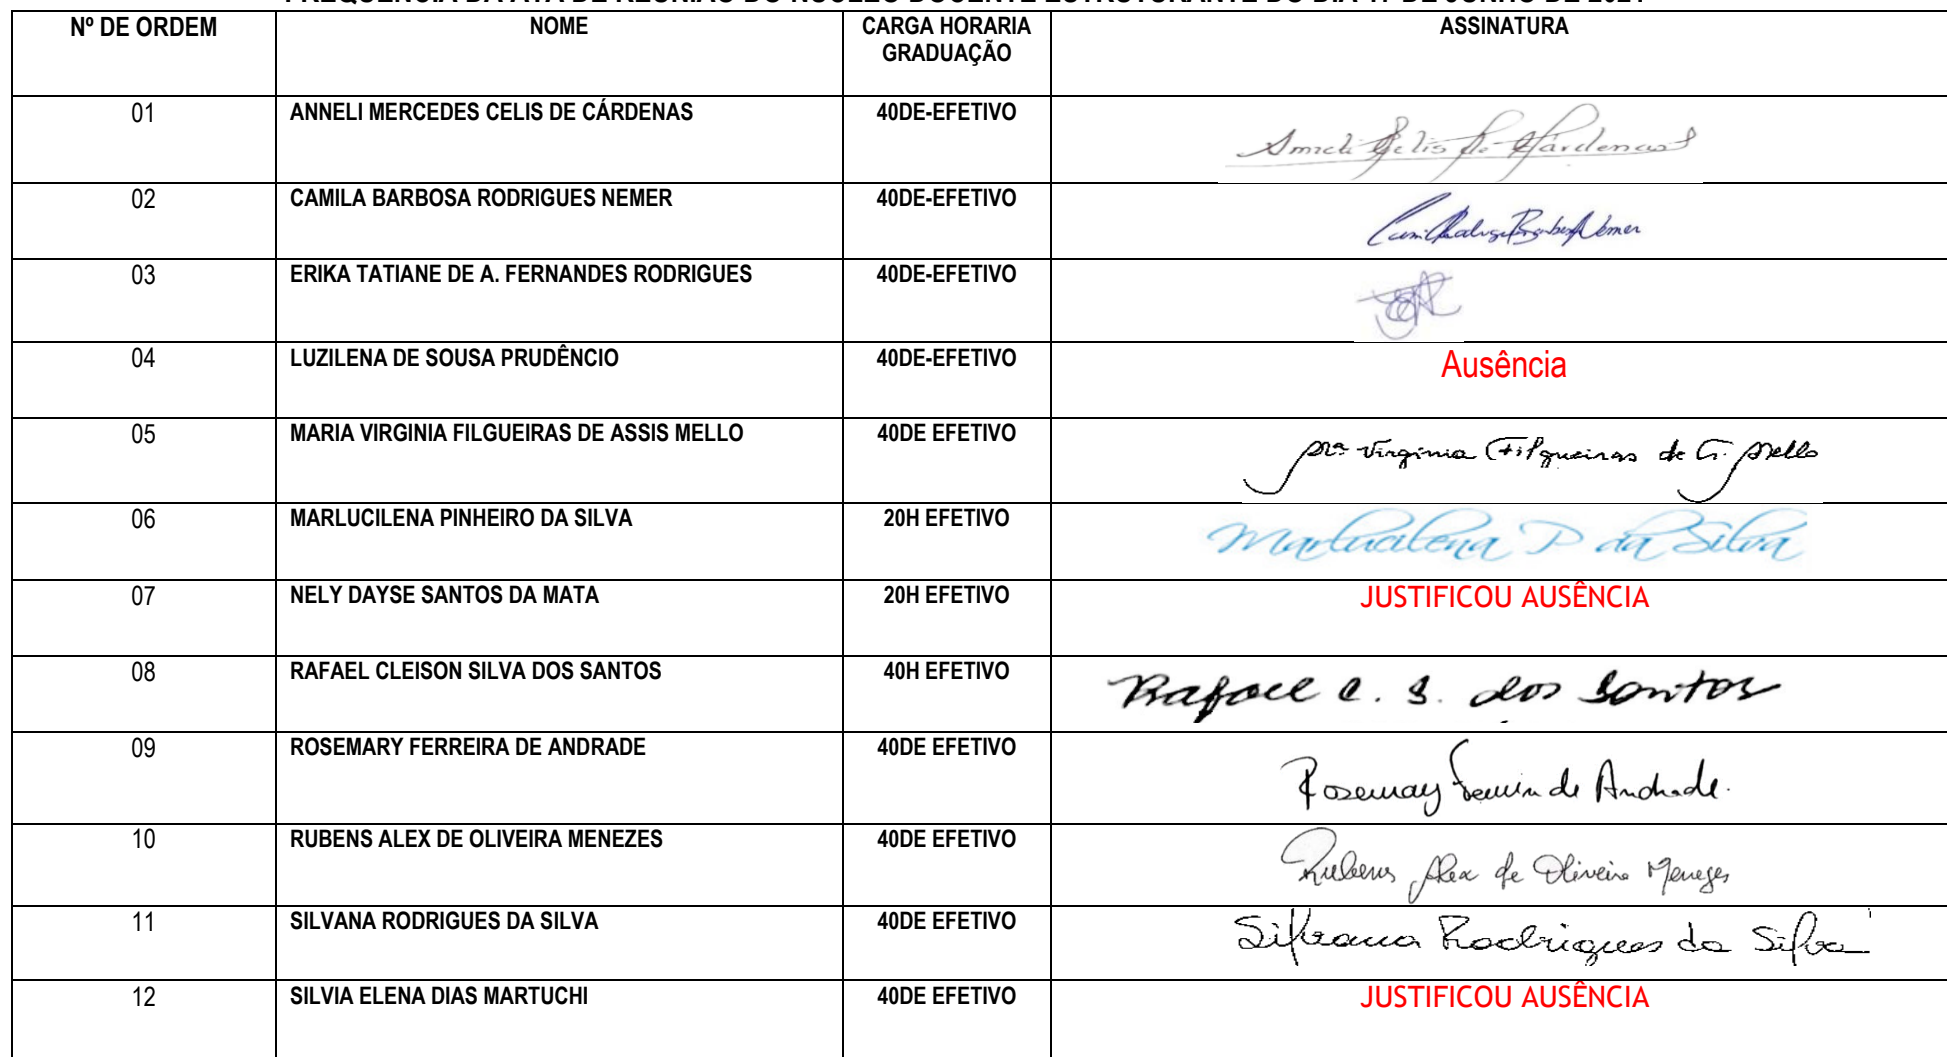 FREQUÊNCIA DA ATA DE REUNIÃO DO NÚCLEO DOCENTE ESTRUTURANTE DO DIA 17 DE JUNHO DE 2021
Nº DE ORDEM NOME CARGA HORARIA GRADUAÇÃO ASSINATURA
01 ANNELI MERCEDES CELIS DE CÁRDENAS 40DE-EFETIVO Anneli Celis de Cárdenas
02 CAMILA BARBOSA RODRIGUES NEMER 40DE-EFETIVO
03 ERIKA TATIANE DE A. FERNANDES RODRIGUES 40DE-EFETIVO
04 LUZILENA DE SOUSA PRUDÊNCIO 40DE-EFETIVO Ausência
05 MARIA VIRGINIA FILGUEIRAS DE ASSIS MELLO 40DE EFETIVO Mª Virginia Filgueiras de A. Mello
06 MARLUCILENA PINHEIRO DA SILVA 20H EFETIVO Marlucilena P da Silva
07 NELY DAYSE SANTOS DA MATA 20H EFETIVO JUSTIFICOU AUSÊNCIA
08 RAFAEL CLEISON SILVA DOS SANTOS 40H EFETIVO Rafael C. S. dos Santos
09 ROSEMARY FERREIRA DE ANDRADE 40DE EFETIVO Rosemary Ferreira de Andrade.
10 RUBENS ALEX DE OLIVEIRA MENEZES 40DE EFETIVO Rubens Alex de Oliveira Menezes
11 SILVANA RODRIGUES DA SILVA 40DE EFETIVO Silvana Rodrigues da Silva
12 SILVIA ELENA DIAS MARTUCHI 40DE EFETIVO JUSTIFICOU AUSÊNCIA